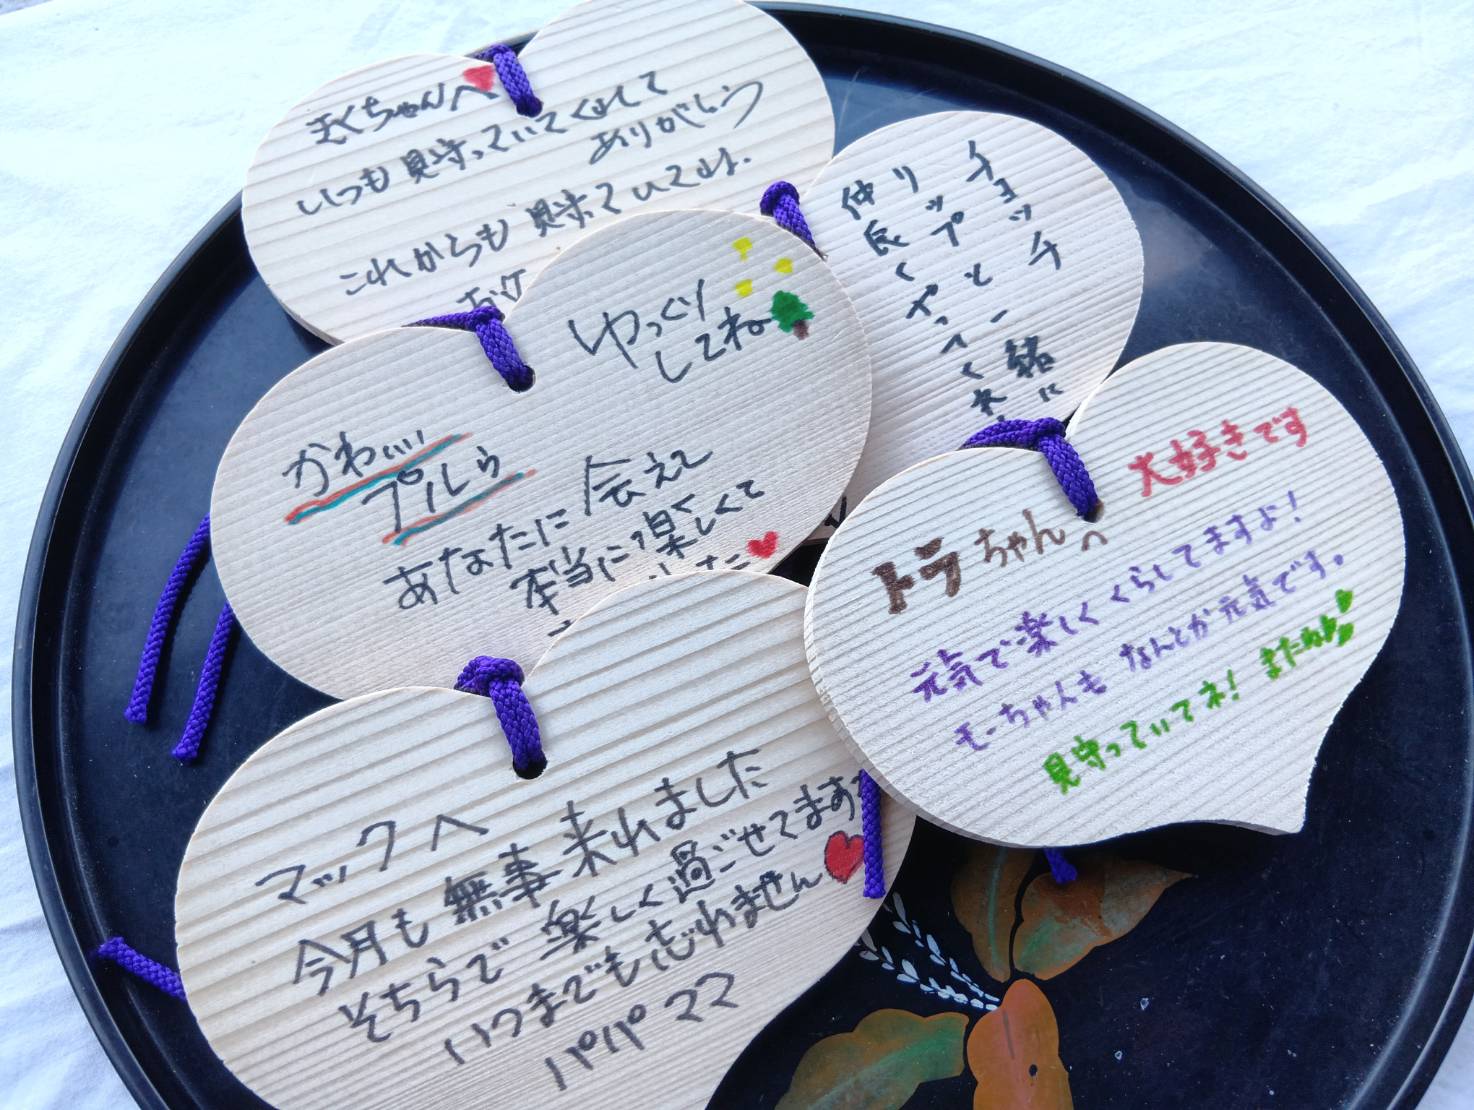 まくちゃんへ
いつも見守っていてくれて
ありがとう
これからも見守っていてね。
チョッチ
リップと一緒に
仲良くやってく
ゆっくり
してね
かわいい
プルら
あなたに会えて
本当に楽しくて
大好きです
トラちゃんへ
元気で楽しくくらしてますよ!
モーちゃんもなんとか元気です。
見守っていてネ! またね
マックへ
今月も無事来れました
そちらで楽しく過ごせてますか
いつまでも忘れません
パパママ